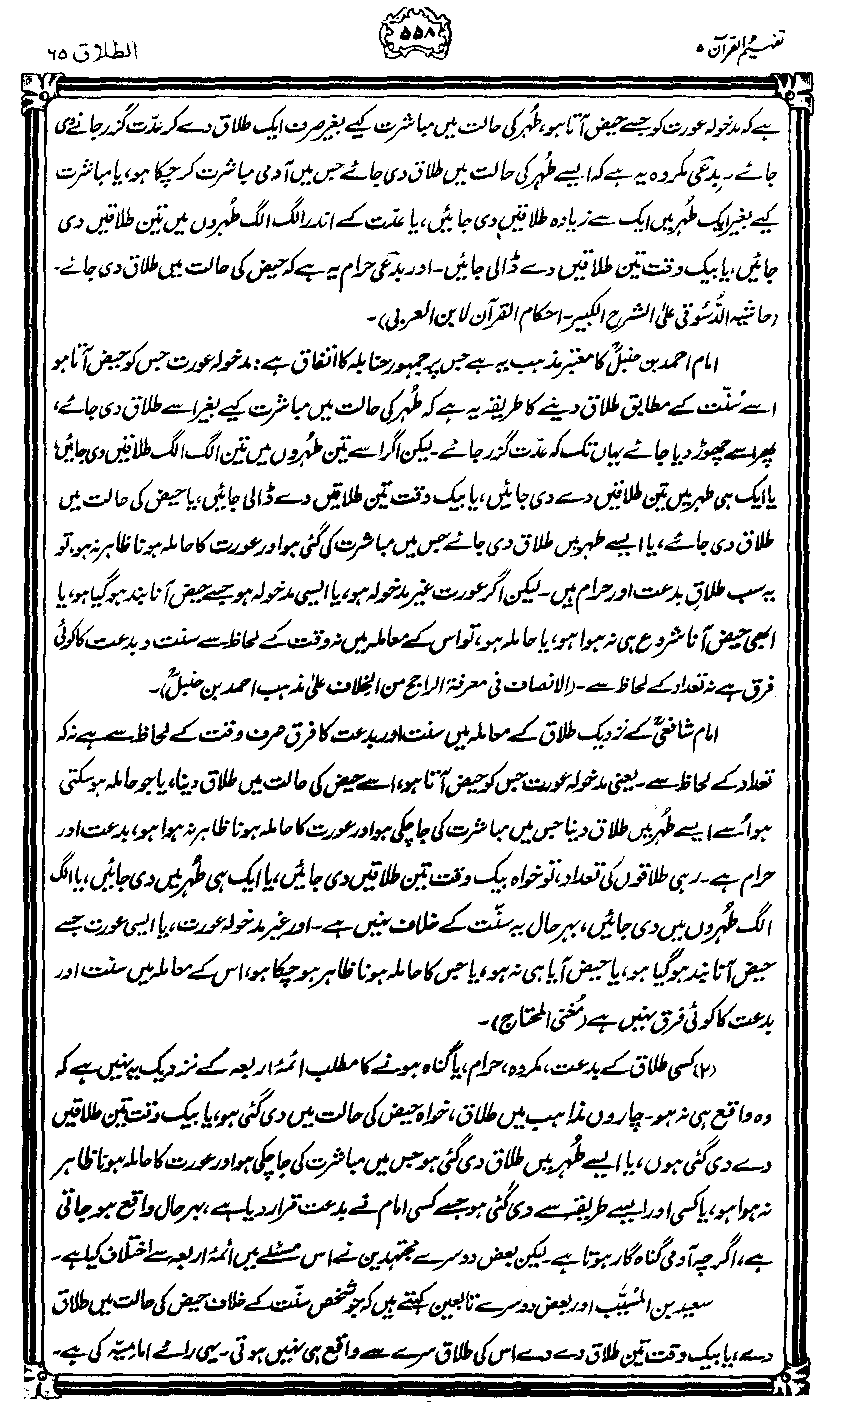 تفہیم القرآن ۵
۵۵۸
الطلاق ۶۵
ہے کہ مدخولہ عورت کو جسے حیض آتا ہو، طُہر کی حالت میں مباشرت کیے بغیر صرف ایک طلاق دے کر عدّت گزر جانے دی
جائے۔ بِدْعی مکروہ یہ ہے کہ ایسے طُہر کی حالت میں طلاق دی جائے جس میں آدمی مباشرت کر چکا ہو، یا مباشرت
کیے بغیر ایک طُہر میں ایک سے زیادہ طلاقیں دی جائیں، یا عدّت کے اندر الگ الگ طُہروں میں تین طلاقیں دی
جائیں، یا بیک وقت تین طلاقیں دے ڈالی جائیں۔ اور بدعی حرام یہ ہے کہ حیض کی حالت میں طلاق دی جائے۔
(حاشیہ الدُّسوقی علی الشرح الکبیر۔ احکام القرآن لابن العربی)۔
امام احمد بن حنبلؒ کا معتبر مذہب یہ ہے جس پر جمہور حنابلہ کا اتفاق ہے: مدخولہ عورت جس کو حیض آتا ہو
اسے سُنّت کے مطابق طلاق دینے کا طریقہ یہ ہے کہ طُہر کی حالت میں مباشرت کیے بغیر اسے طلاق دی جائے،
پھر اسے چھوڑ دیا جائے یہاں تک کہ عدّت گزر جائے۔ لیکن اگر اسے تین طُہروں میں تین الگ الگ طلاقیں دی جائیں،
یا ایک ہی طہر میں تین طلاقیں دے دی جائیں، یا بیک وقت تین طلاقیں دے ڈالی جائیں، یا حیض کی حالت میں
طلاق دی جائے، یا ایسے طہر میں طلاق دی جائے جس میں مباشرت کی گئی ہو اور عورت کا حاملہ ہونا ظاہر نہ ہو، تو
یہ سب طلاقِ بدعت اور حرام ہیں۔ لیکن اگر عورت غیر مدخولہ ہو، یا ایسی مدخولہ ہو جسے حیض آنا بند ہو گیا ہو، یا
ابھی حیض آنا شروع ہی نہ ہوا ہو، یا حاملہ ہو، تو اس کے معاملہ میں نہ وقت کے لحاظ سے سنت و بدعت کا کوئی
فرق ہے نہ تعداد کے لحاظ سے۔ (الانصاف فی معرفۃ الراجح من الخلاف علیٰ مذہب احمد بن حنبلؒ)۔
امام شافعیؒ کے نزدیک طلاق کے معاملہ میں سنت اور بدعت کا فرق صرف وقت کے لحاظ سے ہے نہ کہ
تعداد کے لحاظ سے۔ یعنی مدخولہ عورت جس کو حیض آتا ہو، اسے حیض کی حالت میں طلاق دینا، یا جو حاملہ ہو سکتی
ہو اُسے ایسے طُہر میں طلاق دینا جس میں مباشرت کی جا چکی ہو اور عورت کا حاملہ ہونا ظاہر نہ ہوا ہو، بدعت اور
حرام ہے۔ رہی طلاقوں کی تعداد، تو خواہ بیک وقت تین طلاقیں دی جائیں، یا ایک ہی طُہر میں دی جائیں، یا الگ
الگ طُہروں میں دی جائیں، بہرحال یہ سنّت کے خلاف نہیں ہے۔ اور غیر مدخولہ عورت، یا ایسی عورت جسے
حیض آنا بند ہو گیا ہو، یا حیض آیا ہی نہ ہو، یا جس کا حاملہ ہونا ظاہر ہو چکا ہو، اس کے معاملہ میں سنت اور
بدعت کا کوئی فرق نہیں ہے (مُغنی المحتاج)۔
(۲) کسی طلاق کے بدعت، مکروہ، حرام، یا گناہ ہونے کا مطلب ائمۂ اربعہ کے نزدیک یہ نہیں ہے کہ
وہ واقع ہی نہ ہو۔ چاروں مذاہب میں طلاق، خواہ حیض کی حالت میں دی گئی ہو، یا بیک وقت تین طلاقیں
دے دی گئی ہوں، یا ایسے طُہر میں طلاق دی گئی ہو جس میں مباشرت کی جا چکی ہو اور عورت کا حاملہ ہونا ظاہر
نہ ہوا ہو، یا کسی اور ایسے طریقے سے دی گئی ہو جسے کسی امام نے بدعت قرار دیا ہے، بہرحال واقع ہو جاتی
ہے، اگرچہ آدمی گناہ گار ہوتا ہے۔ لیکن بعض دوسرے مجتہدین نے اس مسئلے میں ائمۂ اربعہ سے اختلاف کیا ہے۔
سعید بن المُسیَّب اور بعض دوسرے تابعین کہتے ہیں کہ جو شخص سنّت کے خلاف حیض کی حالت میں طلاق
دے، یا بیک وقت تین طلاق دے دے اس کی طلاق سرے سے واقع ہی نہیں ہوتی۔ یہی رائے امامیّہ کی ہے۔